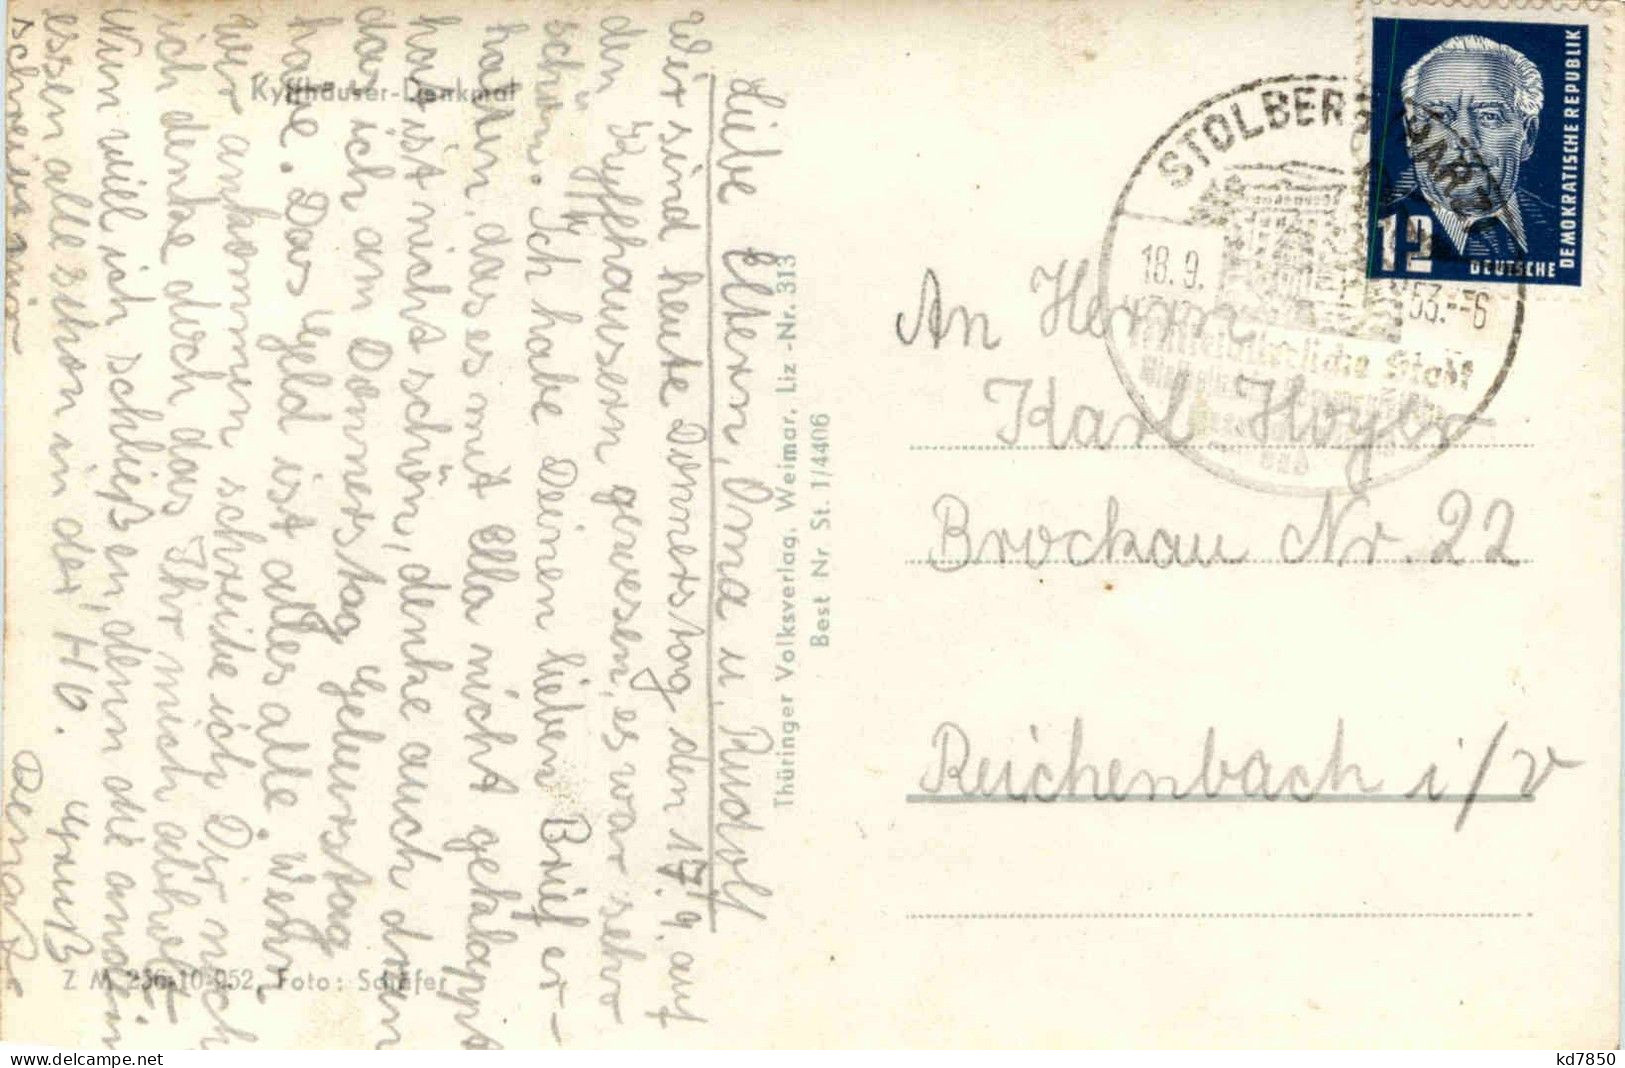 Kyffhäuser-Denkmal
Liebe Eltern, Oma u. Rudolf
Wir sind heute Donnerstag den 17.9. auf
den Kyffhäusern gewesen, es war sehr
schön. Ich habe Deinen lieben Brief er-
halten, das es mit Ella nicht geklappt
hat ist nicht schön, denke auch dran
das ich am Donnerstag Geburtstag
habe. Das Geld ist alles alle. Wenn
wir ankommen schreibe ich Dir noch
ich denke doch das Ihr mich abholt.
Nun will ich schließen, denn die andern
essen alle schon in der HO. Gruß
schreiben Renate.
Z M 256-10-952, Foto: Schäfer
Thüringer Volksverlag, Weimar, Liz-Nr. 313
Best Nr. St. 1/4406
STOLBERG (HARZ)
18.9. 53.--6
DEUTSCHE DEMOKRATISCHE REPUBLIK
12
An Herrn
Karl Hoyer
Brockau Nr. 22
Reichenbach i/V
www.delcampe.net
kd7850